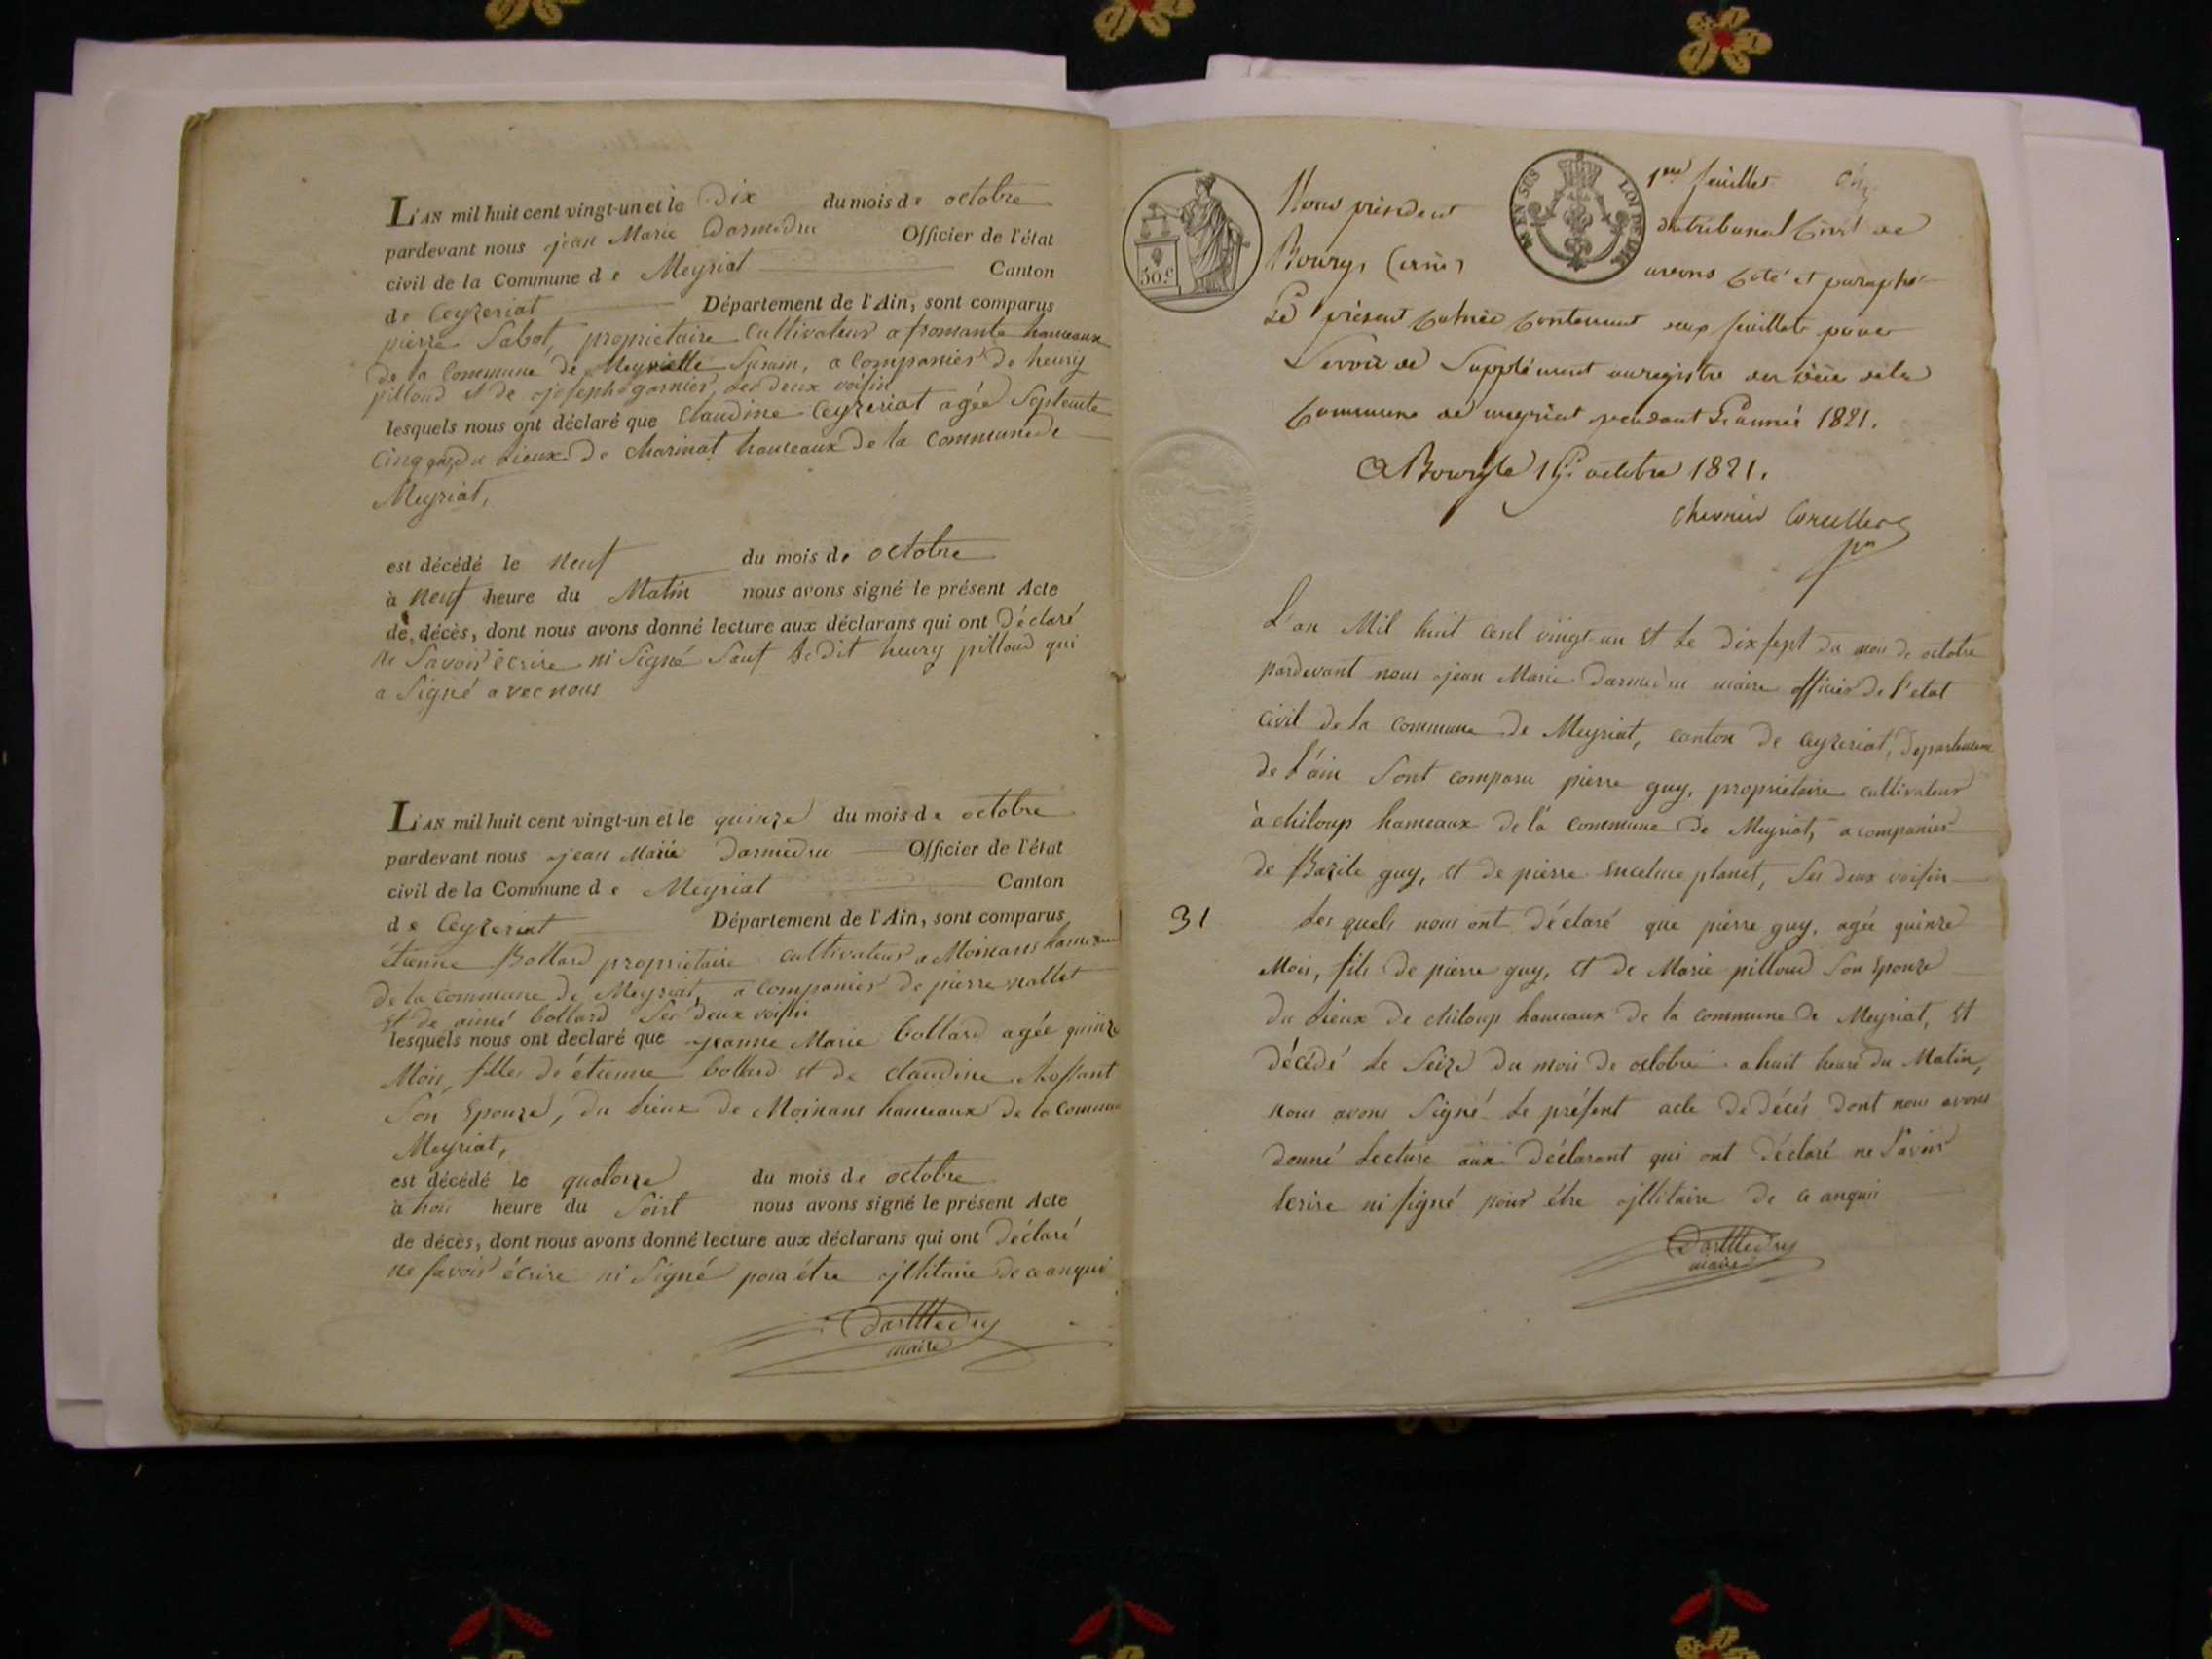 L'AN mil huit cent vingt-un et le Dix du mois de octobre
pardevant nous jean Marie Darmedru Officier de l'état
civil de la Commune de Meyriat Canton
de Ceyzeriat Département de l'Ain, sont comparus
pierre Sabot, proprietaire cultivateur a fromente hameaux
de la Commune de Suram, a companier de heury
pilloud et de josephe garnier, Les deux voisin
lesquels nous ont déclaré que Claudine Ceyzeriat agée Septente
Cinq du Lieux De Charinat hameaux De la Commune de
Meyriat,
est décédé le neuf du mois de octobre
à neuf heure du Matin nous avons signé le présent Acte
de décès, dont nous avons donné lecture aux déclarans qui ont Déclaré
ne Savoir écrire ni Signé Sauf Ledit heury pilloud qui
a Signé avec nous
L'AN mil huit cent vingt-un et le quinze du mois de octobre
pardevant nous jean Marie Darmedru Officier de l'état
civil de la Commune de Meyriat Canton
de Ceyzeriat Département de l'Ain, sont comparus
étienne Bollard proprietaire cultivateur a Moinans hameaux
De la commune de Meyriat, a companier de pierre nallet
et de aimé bollard Ses deux voisin
lesquels nous ont déclaré que jeanne Marie bollard agée quinze
Mois, filles de étienne bollard et de claudine
Son Epouze, du Lieux de Moinans hameaux de la Commune
Meyriat,
est décédé le quatorze du mois de octobre
à troi heure du Soirt nous avons signé le présent Acte
de décès, dont nous avons donné lecture aux déclarans qui ont Déclaré
ne savoir écrire ni Signé pour étre jllitaire de ce anqui
DarMedru
maire
50.c
EN SUS
LOI DE
1er feuillet
Nous président du tribunal Civil de
Bourg, (ain) avons Coté et paraphé
Le présent Cahier Contenant deux feuillets pour
Servir de Supplément au registre des décès de la
Commune de meyriat pendant L'année 1821.
A Bourg le octobre 1821.
L'an Mil huit cent viingt-un et Le dix sept du mois de octobre
pardevant nous jean Marie Darmedru maire officier de l'etat
civil de la commune de Meyriat, canton de Ceyzeriat, Departement
de L'ain Sont comparu pierre guy, proprietaire cultivateur
à chiloup hameaux de la commune de Meyriat, a companier
de Bazile guy, et de pierre planet, Ses deux voisin
31 Les quels nous ont déclaré que pierre guy, agée quinze
Mois, fils de pierre guy, et de Marie pilloud Son Epouze
du Lieux de chiloup hameaux de la commune de Meyriat, et
décédé Le Seize du mois de octobre a huit heure du Matin,
nous avons Signé Le présent acte de décés dont nous avons
donné Lecture aux Déclarant qui ont Déclaré ne Savoir
Ecrire ni signé pour étre jllitaire de ce anquis
DarMedru
maire